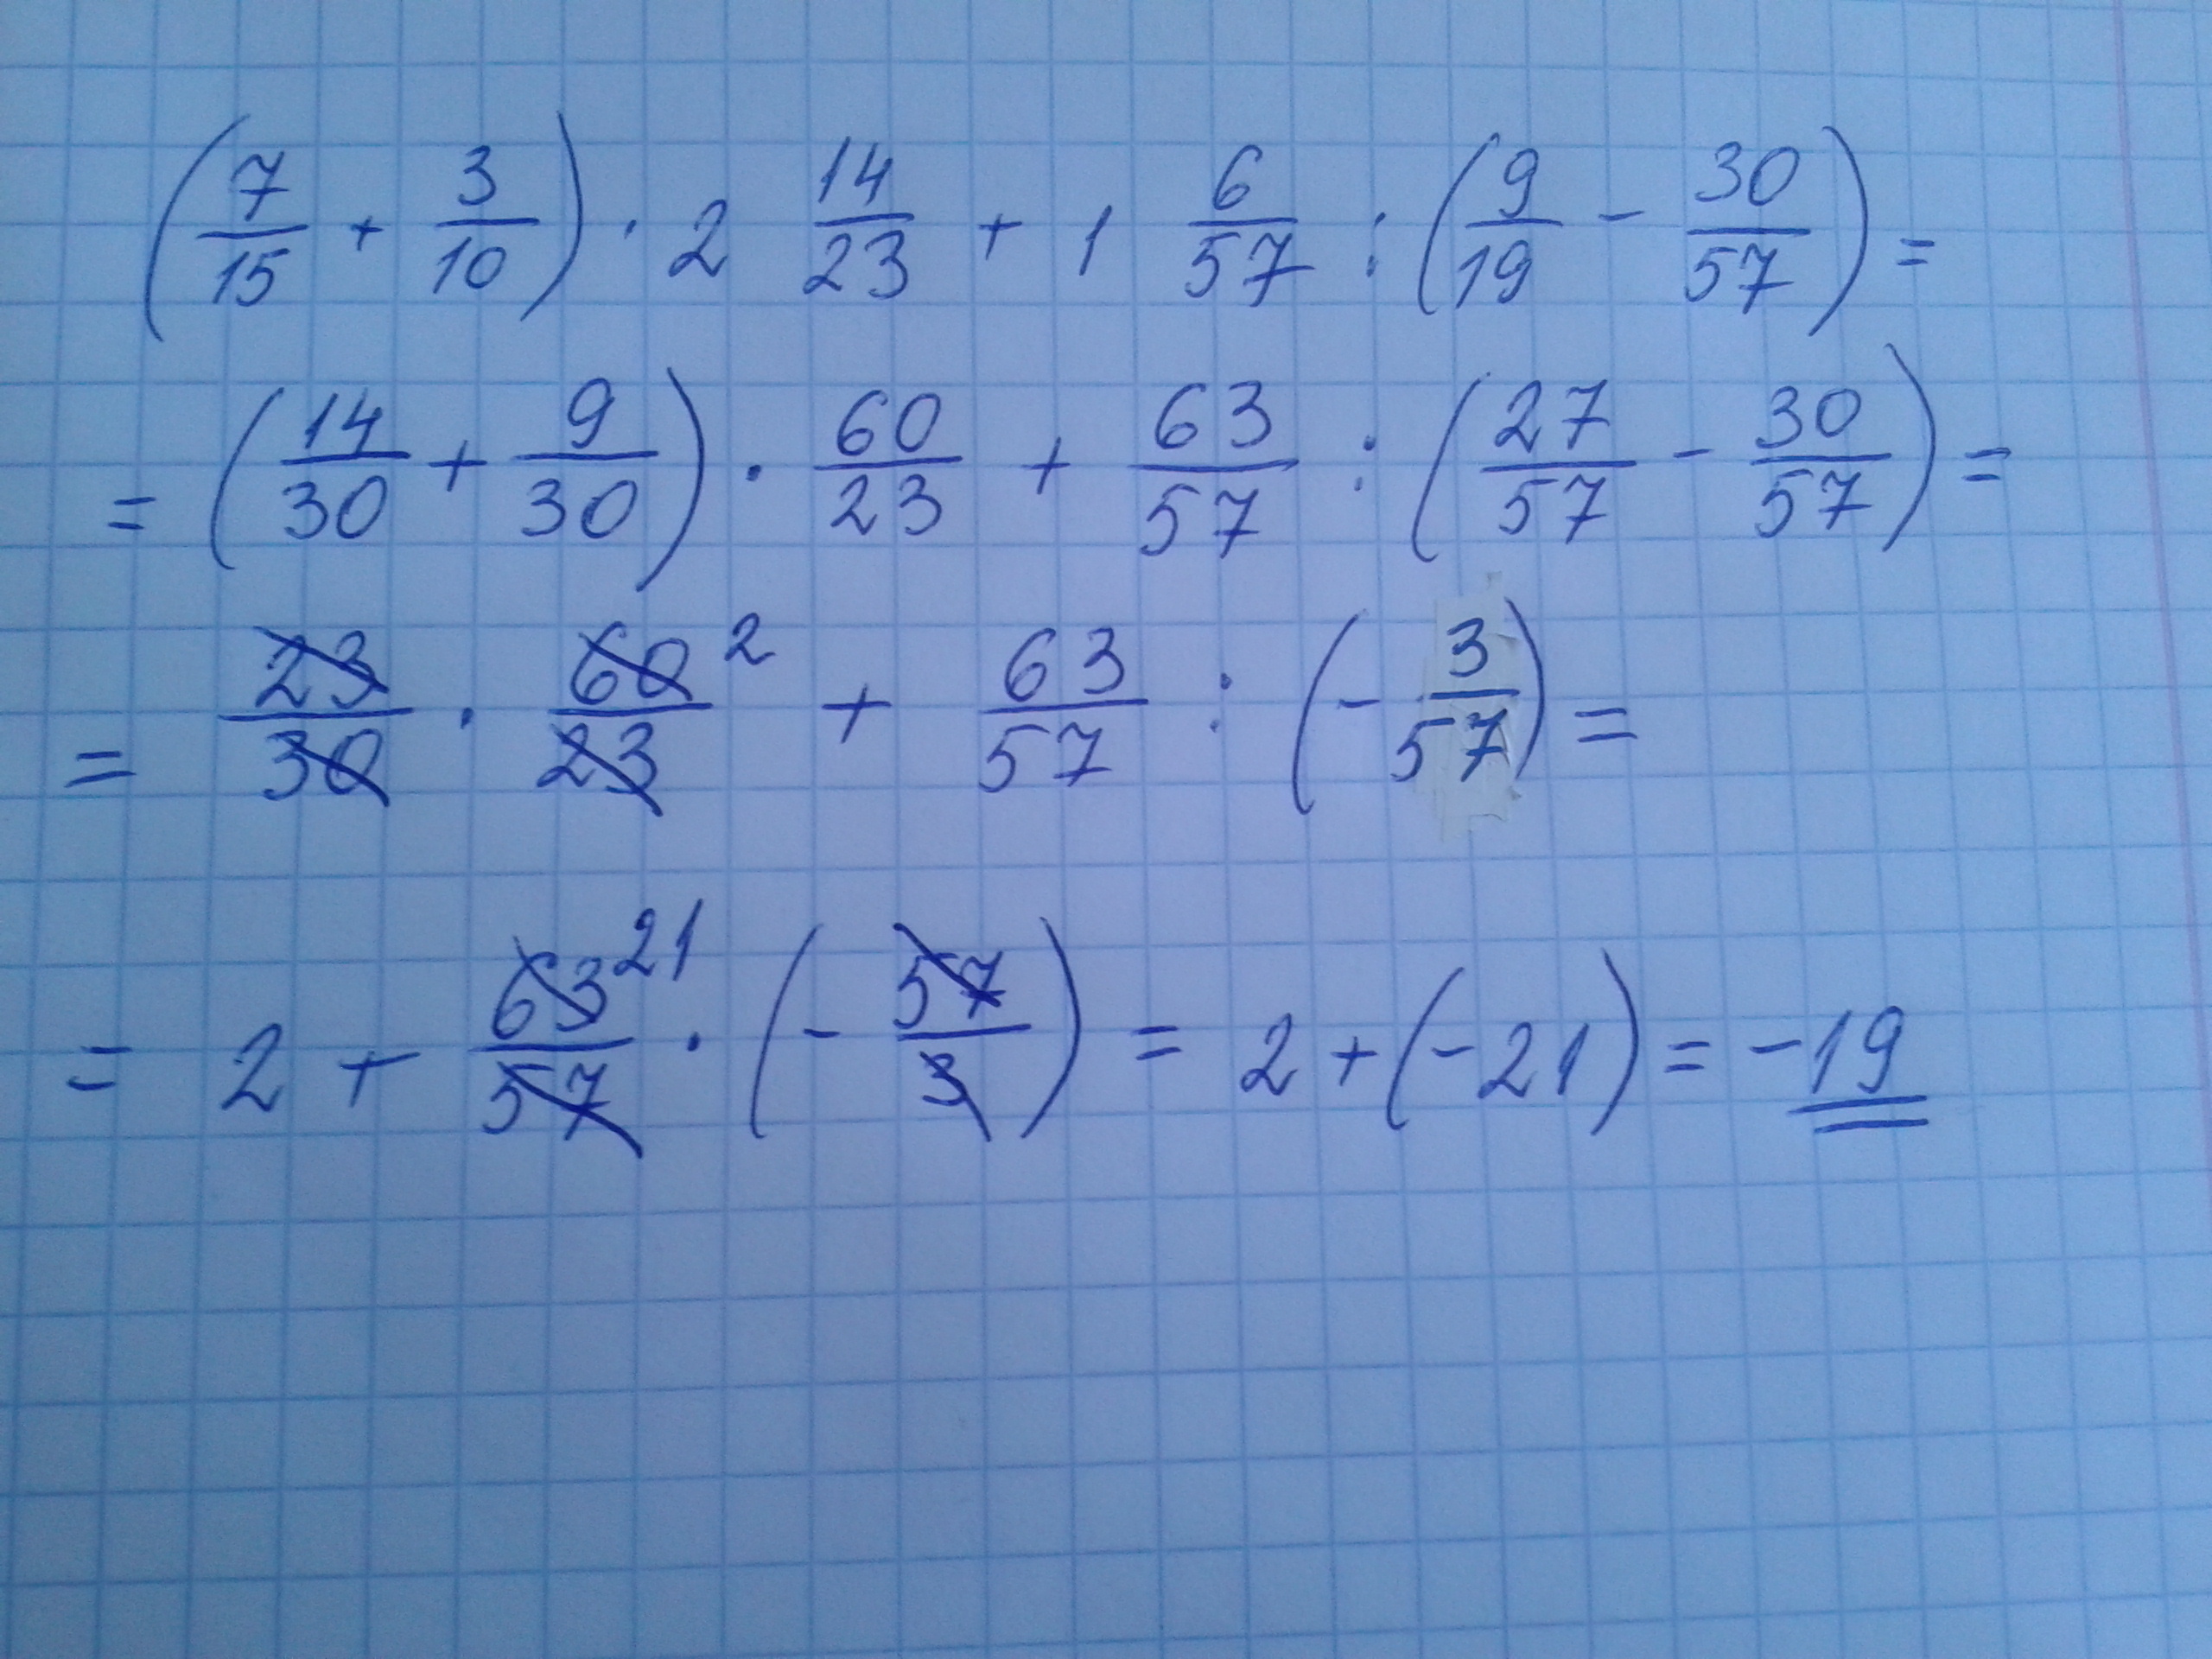 (7/15 + 3/10) · 2 14/23 + 1 6/57 : (9/19 - 30/57) =
= (14/30 + 9/30) · 60/23 + 63/57 : (27/57 - 30/57) =
= 23/30 · 60/23 2 + 63/57 : (- 3/57) =
= 2 + 63/57 21 · (- 57/3) = 2 + (-21) = -19